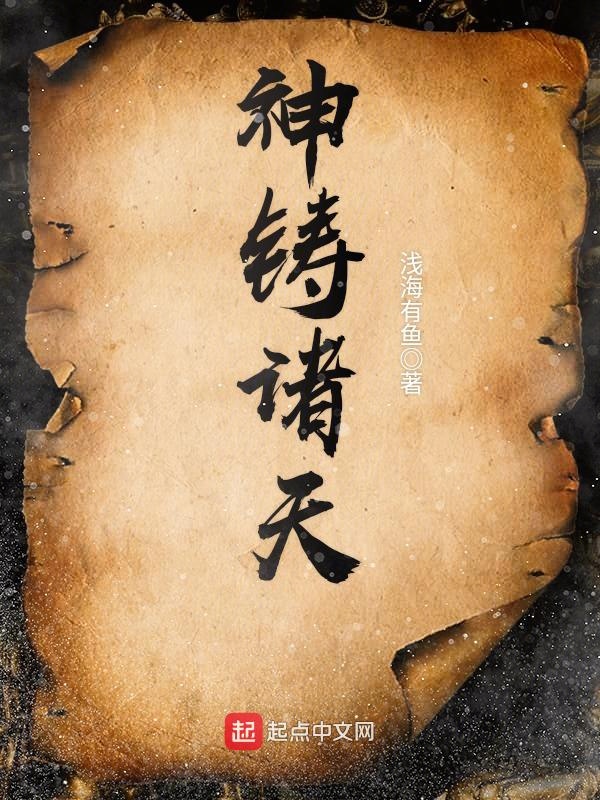 神铸诸天
浅海有鱼◎著
起 起点中文网